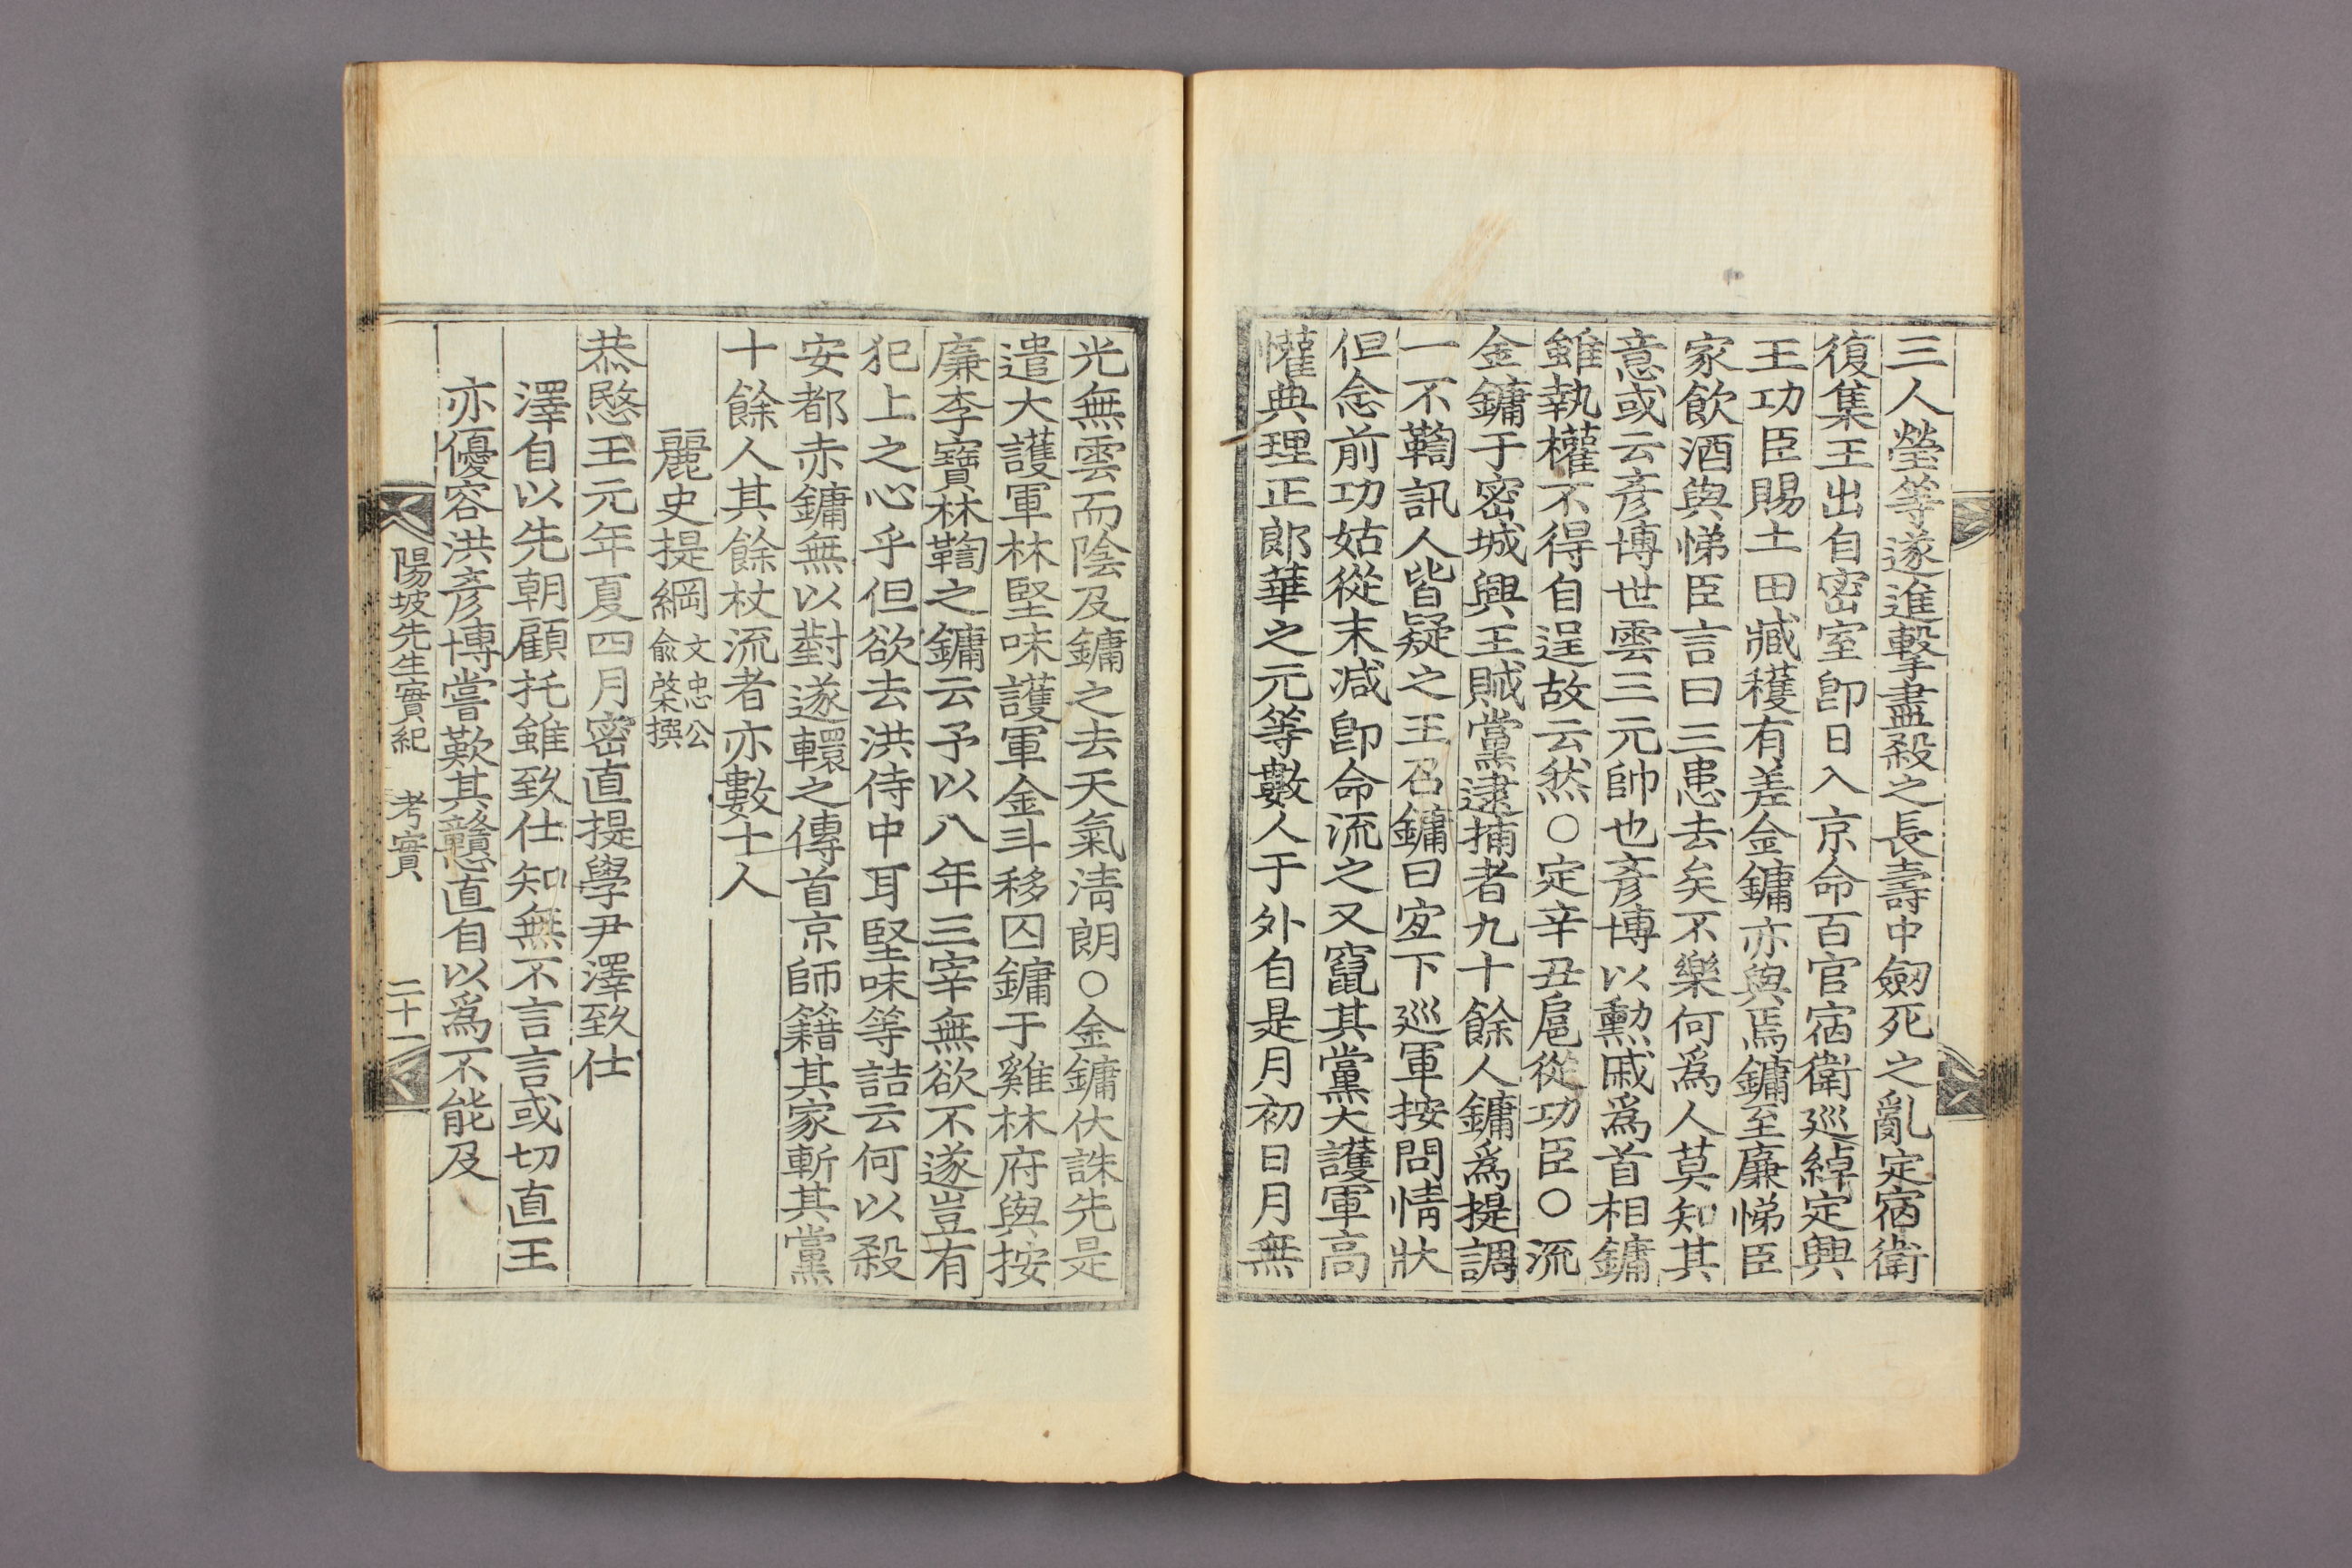 三人瑩等遂進擊盡殺之長壽中劒死之亂定宿衛
復集王出自密室卽日入京命百官宿衛巡綽定興
王功臣賜土田臧穫有差金鏞亦與焉鏞至廉悌臣
家飮酒與悌臣言曰三患去矣不樂何爲人莫知其
意或云彥博世雲三元帥也彥博以勳戚爲首相鏞
雖執權不得自逞故云然○定辛丑扈從功臣○流
金鏞于密城興王賊黨逮捕者九十餘人鏞爲提調
一不鞫訊人皆疑之王召鏞曰宜下巡軍按問情狀
但念前功姑從末减卽命流之又竄其黨大護軍高
懽典理正郞華之元等數人于外自是月初日月無
光無雲而陰及鏞之去天氣淸朗○金鏞伏誅先是
遣大護軍林堅味護軍金斗移囚鏞于雞林府與按
廉李寶林鞫之鏞云予以八年三宰無欲不遂豈有
犯上之心乎但欲去洪侍中耳堅味等詰云何以殺
安都赤鏞無以對遂轘之傳首京師籍其家斬其黨
十餘人其餘杖流者亦數十人
麗史提綱 文忠公
兪棨撰
恭愍王元年夏四月密直提學尹澤致仕
澤自以先朝顧托雖致仕知無不言言或切直王
亦優容洪彥博嘗歎其戇直自以爲不能及
陽坡先生實紀 考實 二十一